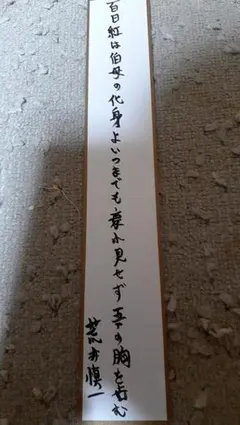 百日紅は伯母の化身よいつまでも衰へ見せず吾の胸を占む
荒井慎一